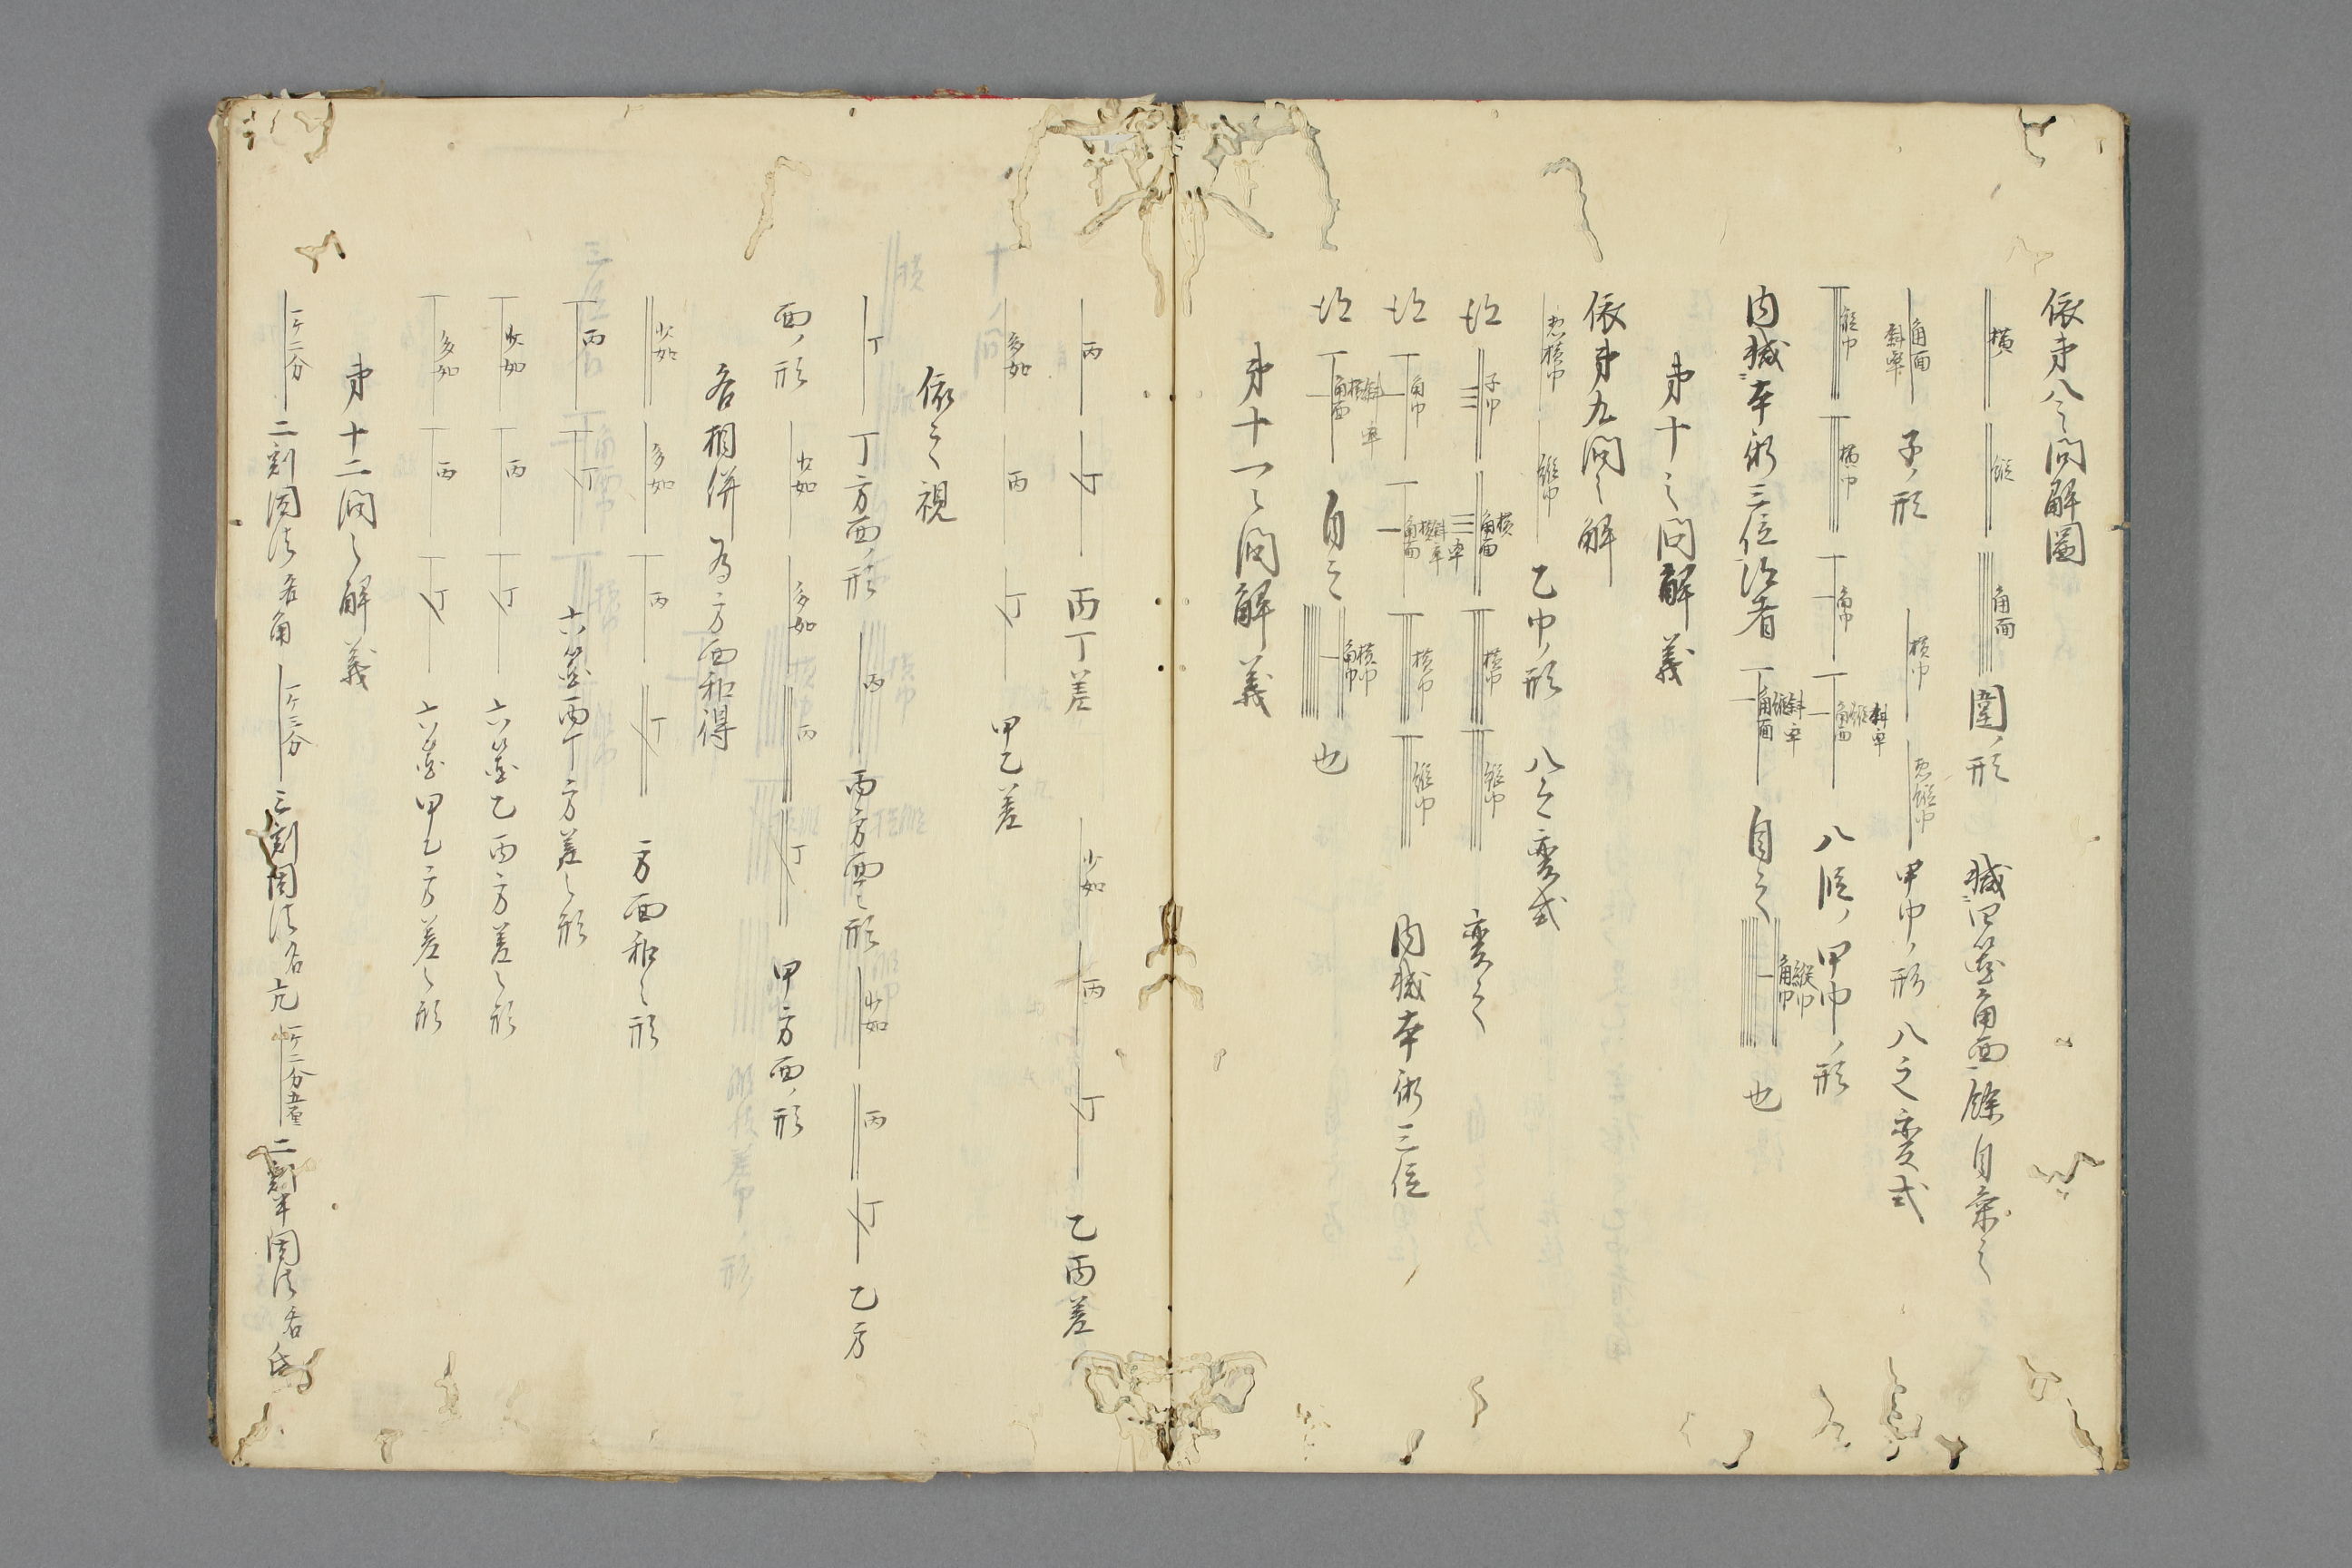 依第八之問解圖
横 縦 角面 圍ノ形 減四箇角面餘自乗之
角面 斜率 子ノ形 横巾 縦巾 甲巾ノ形 八之変式
縦巾 横巾 角巾 斜率 縦 角面 八 ノ甲巾ノ形
内減本術三位 者 斜率 縦 角面 自之 縦巾 角巾 也
第十之問解義
依第九問之解
横巾 縦巾 乙巾ノ形 八之変式
子巾 横 角面 横巾 縦巾 変之
角巾 斜率 横 角面 横巾 縦巾 内減本術三位
斜率 横 角面 自之 横巾 角巾 也
第十一之問解義
丙 丁 丙丁差 少如 丙 丁 乙丙差
多如 丙 丁 甲乙差
依之視
丁 丁方面ノ形 丙 丙方面之形 少如 丙 丁 乙方
面ノ形 少如 多如 丙 丁 甲方面ノ形
各相併為方面和得
少如 多如 丙 丁 方面和之形
丙 丁 六箇丙丁方差之形
少如 丙 丁 六箇乙丙方差之形
多如 丙 丁 六箇甲乙方差之形
第十二問之解義
一ケ二分 二割圓法名角 一ケ三分 三割圓法名亢 一ケ二分五厘 二割半圓法名氐